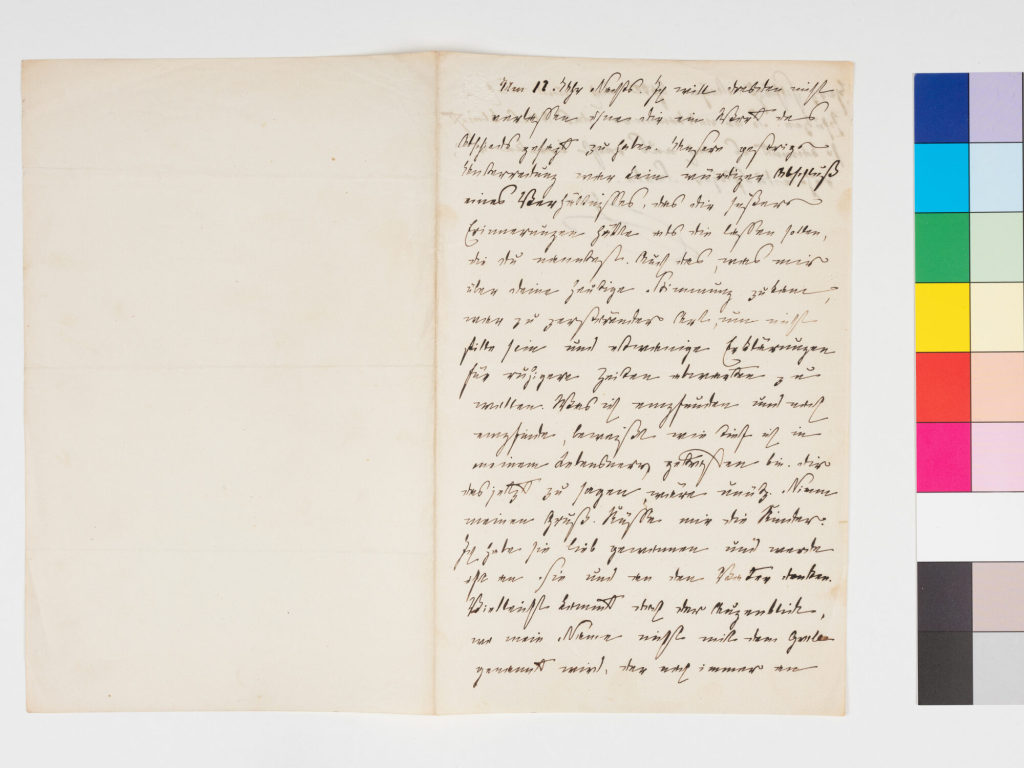 Um 12 Uhr Nachts Ich will Dresden nicht
verlassen ohne dir ein Wort des
Abschieds gesagt zu haben. Unsere gestrige
Unterredung war kein würdiger Abschluß
eines Verhältnisses, das dir süßere
Erinnerungen hätte als die lassen sollen,
die du nanntest. Auch das, was mir
über deine heutige Stimmung zukam,
war zu zerstörender Art, um nicht
stille sein und etwanige Erklärungen
für ruhigere Zeiten abwarten zu
wollen. Was ich empfunden und noch
empfinde, beweißt wie tief ich in
meinem Lebensnerv getroffen bin. dir
das jetzt zu sagen, wäre unnütz. Nimm
meinen Gruß. Küsse mir die Kinder.
Ich habe sie lieb gewonnen und werde
oft an Sie und an den Vater denken.
Vielleicht kommt doch der Augenblick,
wo mein Name nicht mit dem Groll
genannt wird, der noch immer an